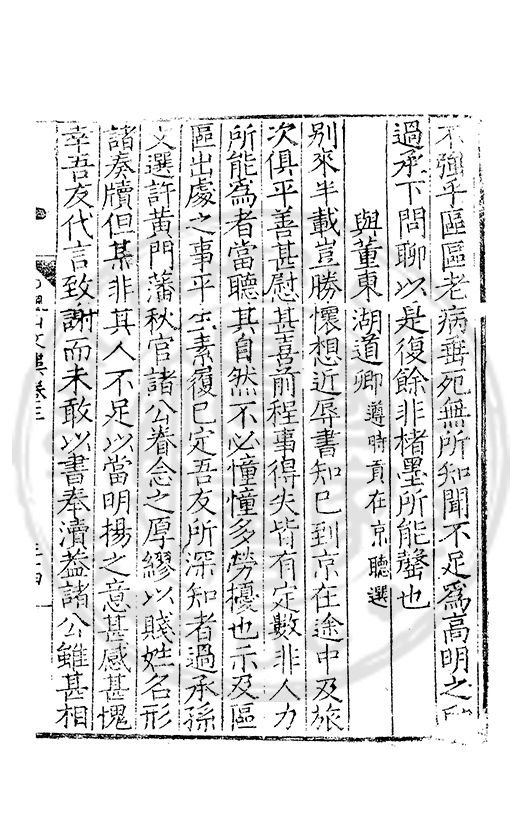 不強乎區區老病垂死無所知聞不足為高明之
過承下問聊以是復餘非楮墨所能罄也
與董東湖道卿遵時貢在京聽選
別來半載豈勝懷想近辱書知已到京在途中及旅
次俱平善甚慰甚喜前程事得失皆有定數非人力
所能為者當聽其自然不必憧憧多勞擾也示及區
區出處之事平生素履已定吾友所深知者過承孫
文選許黃門藩秋官諸公眷念之厚繆以賤姓名形
諸奏牘但某非其人不足以當明揚之意甚感甚愧
幸吾友代言致謝而未敢以書奉瀆葢諸公雖甚相
卷三